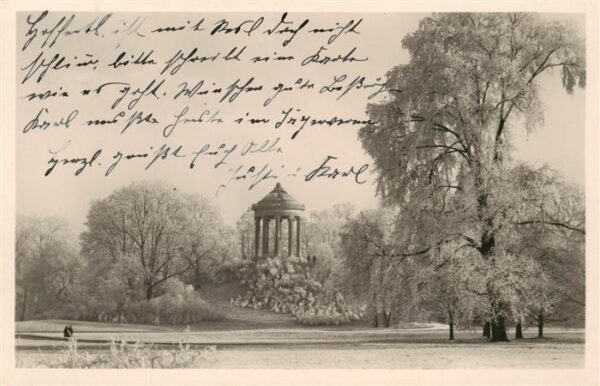 Hoffentl. ist mit Resl doch nicht
schlim, bitte schreibt eine Karte
wie es geht. Wünschen gute Beß
Karl mußte heute im Jägerverein
Herzl. grüßt Euch Alle
Justi u Karl